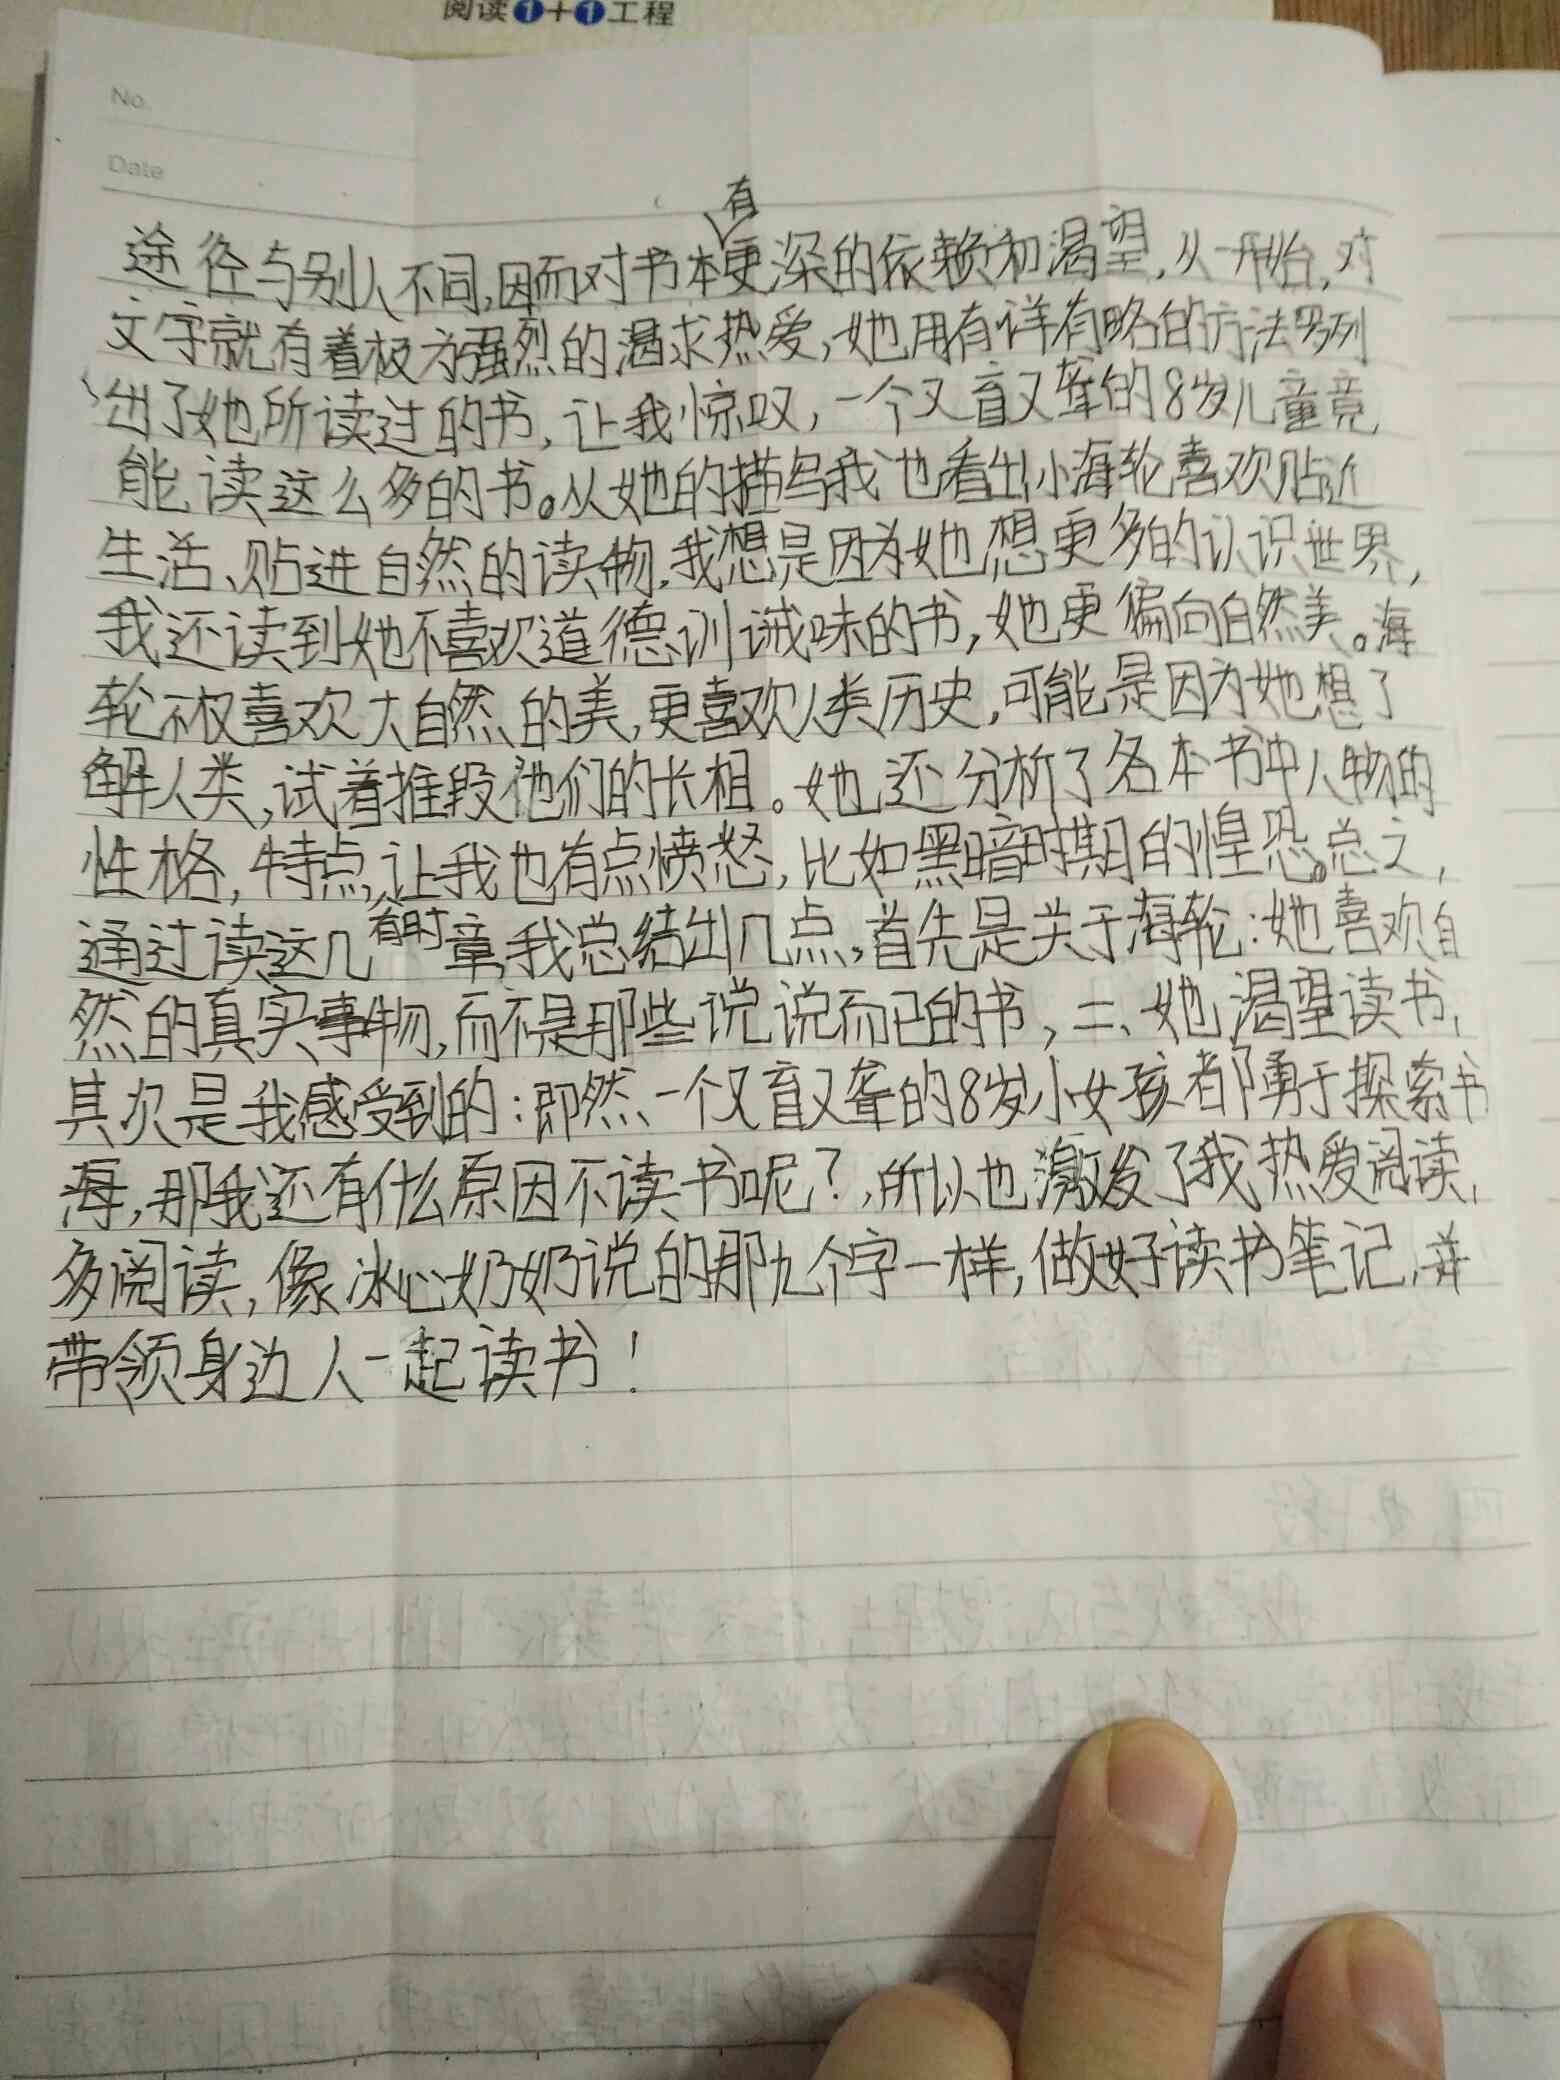 阅读1+1工程
No.
Date
有
途径与别人不同,因而对书本更深的依赖和渴望,从一开始,对
文字就有着极为强烈的渴求热爱,她用有详有略的方法罗列
出了她所读过的书,让我惊叹,一个又盲又聋的8岁儿童竟
能读这么多的书。从她的描写我也看出小海轮喜欢贴近
生活、贴进自然的读物,我想是因为她想更多的认识世界,
我还读到她不喜欢道德训诫味的书,她更偏向自然美。海
轮不仅喜欢大自然的美,更喜欢人类历史,可能是因为她想了
解人类,试着推段他们的长相。她还分析了各本书中人物的
性格,特点,让我也有点愤怒,比如黑暗时期的惶恐。总之,
有时
通过读这几章,我总结出几点,首先是关于海轮:她喜欢自
然的真实事物,而不是那些说说而已的书,二、她渴望读书,
其次是我感受到的:即然一个又盲又聋的8岁小女孩都勇于探索书
海,那我还有什么原因不读书呢?,所以也激发了我热爱阅读,
多阅读,像冰心奶奶说的那九个字一样,做好读书笔记,并
带领身边人一起读书!